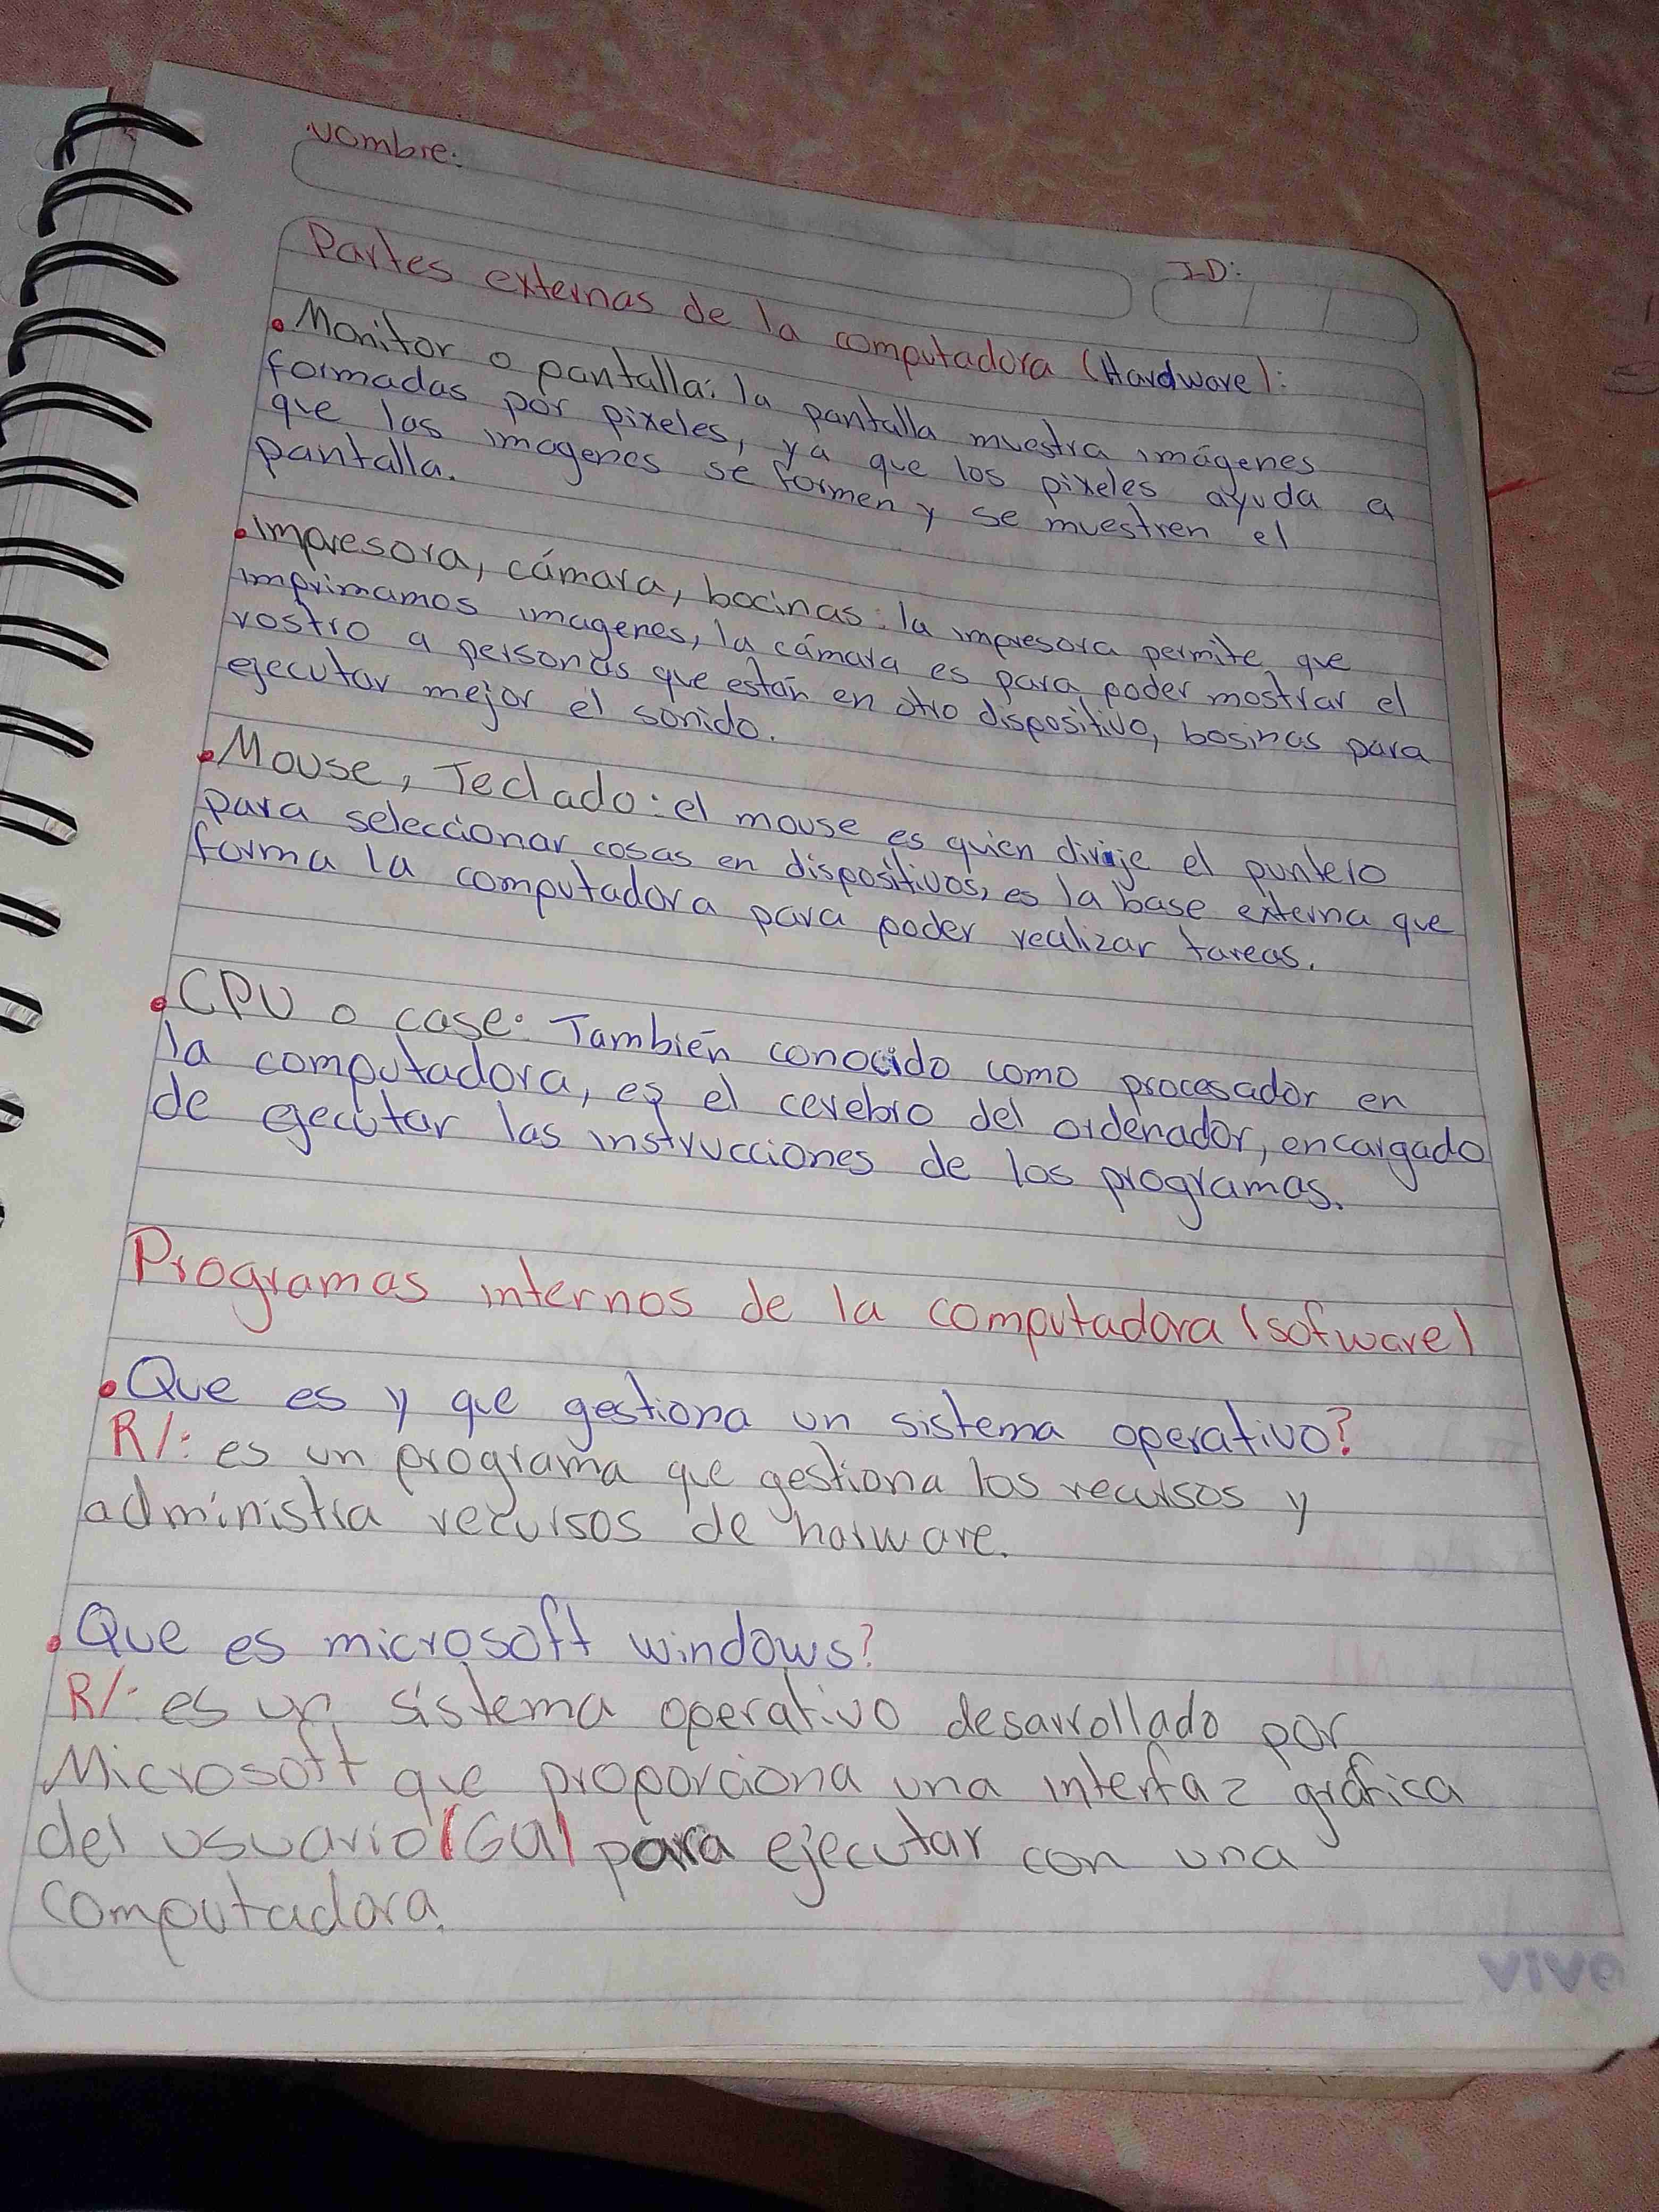 Nombre:
I-D:
Partes externas de la computadora (Hardware):
Monitor o pantalla: la pantalla muestra imágenes
formadas por pixeles, ya que los pixeles ayuda a
que las imagenes se formen y se muestren el
pantalla.
Impresora, cámara, bocinas: la impresora permite que
imprimamos imagenes, la cámara es para poder mostrar el
rostro a personas que están en otro dispositivo, bosinas para
ejecutar mejor el sonido.
Mouse, Teclado: el mouse es quien dirije el puntero
para seleccionar cosas en dispositivos, es la base externa que
forma la computadora para poder realizar tareas.
CPU o case: También conocido como procesador en
la computadora, es el cerebro del ordenador, encargado
de ejecutar las instrucciones de los programas.
Programas internos de la computadora (sofware)
Que es y que gestiona un sistema operativo?
R/: es un programa que gestiona los recursos y
administra recursos de harware.
Que es microsoft windows?
R/: es un sistema operativo desarrollado por
Microsoft que proporciona una interfaz gráfica
del usuario (GUI) para ejecutar con una
computadora.
viva